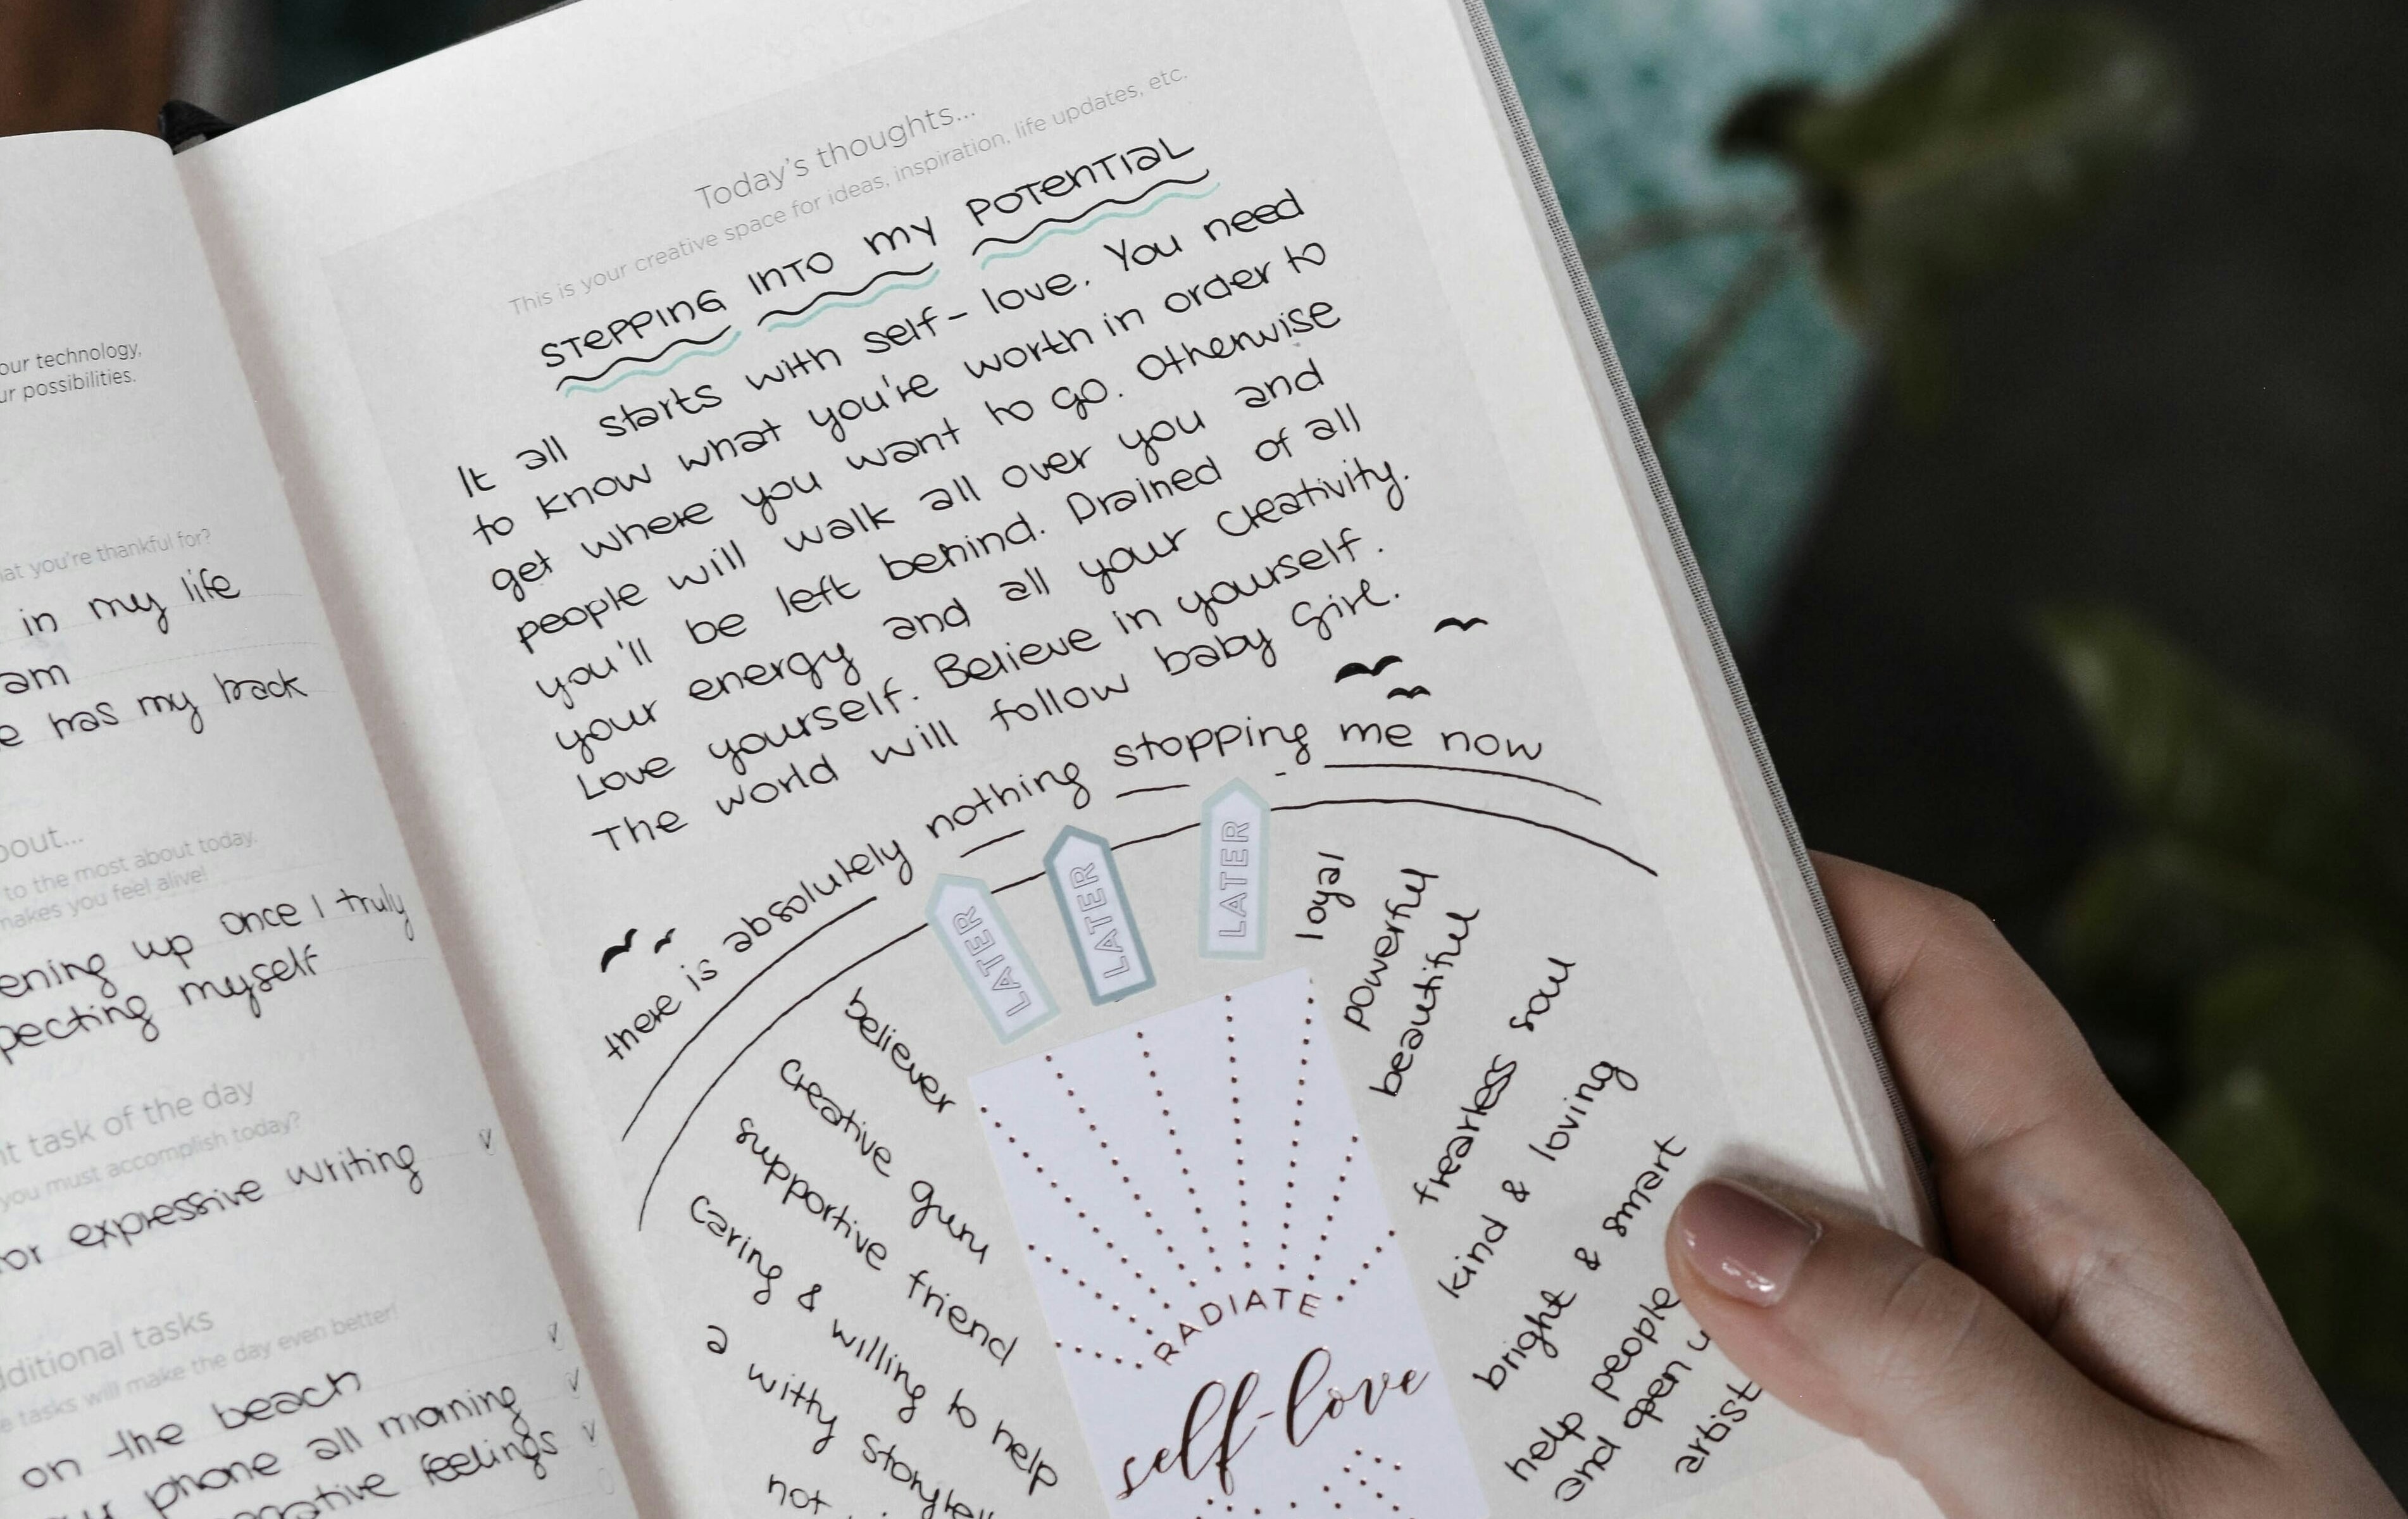 our technology,
ur possibilities.
at you're thankful for?
in my life
am
e has my back
bout...
to the most about today.
makes you feel alive!
ening up once I truly
pecting myself
nt task of the day
you must accomplish today?
or expressive writing
dditional tasks
e tasks will make the day even better!
on the beach
phone all morning
negative feelings
Today's thoughts...
This is your creative space for ideas, inspiration, life updates, etc.
STEPPING INTO MY POTENTIAL
It all starts with self-love. You need
to know what you're worth in order to
get where you want to go. Otherwise
people will walk all over you and
you'll be left behind. Drained of all
your energy and all your creativity.
Love yourself. Believe in yourself.
The world will follow baby girl.
there is absolutely nothing stopping me now
LATER
LATER
LATER
believer
creative guru
supportive friend
caring & willing to help
a witty storytell
not
RADIATE
self-love
loyal
powerful
beautiful
fearless soul
kind & loving
bright & smart
help people
and open u
artist